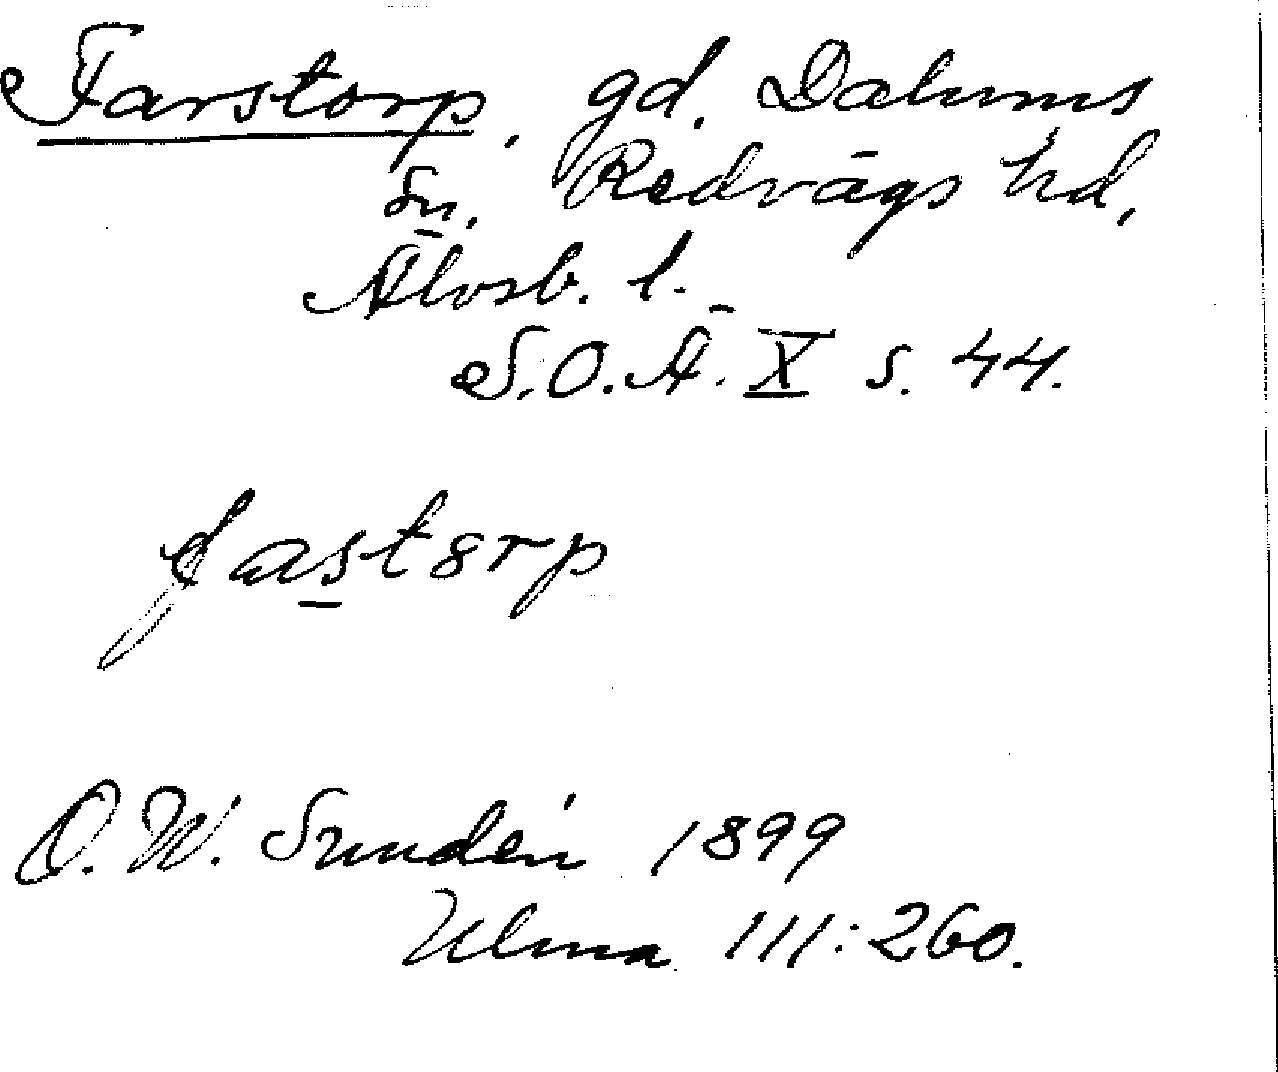 Farstorp, gd. Dalums
sn. Redvägs hd,
Älvsb. l.
S.O.Ä. X s. 44.
fastorp
D. W. Sundén 1899
Ulma 111:260.